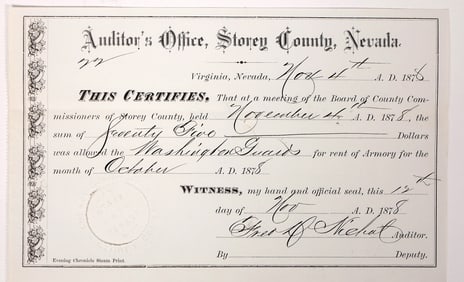 Auditor's Office, Storey County, Nevada.
22
Virginia, Nevada, Nov 4th A. D. 1878
THIS CERTIFIES, That at a meeting of the Board of County Com-
missioners of Storey County, held November 4th A. D. 1878, the
sum of Seventy Five Dollars
was allowed the Washington Guards for rent of Armory for the
month of October A. D. 1878
WITNESS, my hand and official seal, this 12th
day of Nov A. D. 1878
Fred D Auditor.
By Deputy.
Evening Chronicle Steam Print.